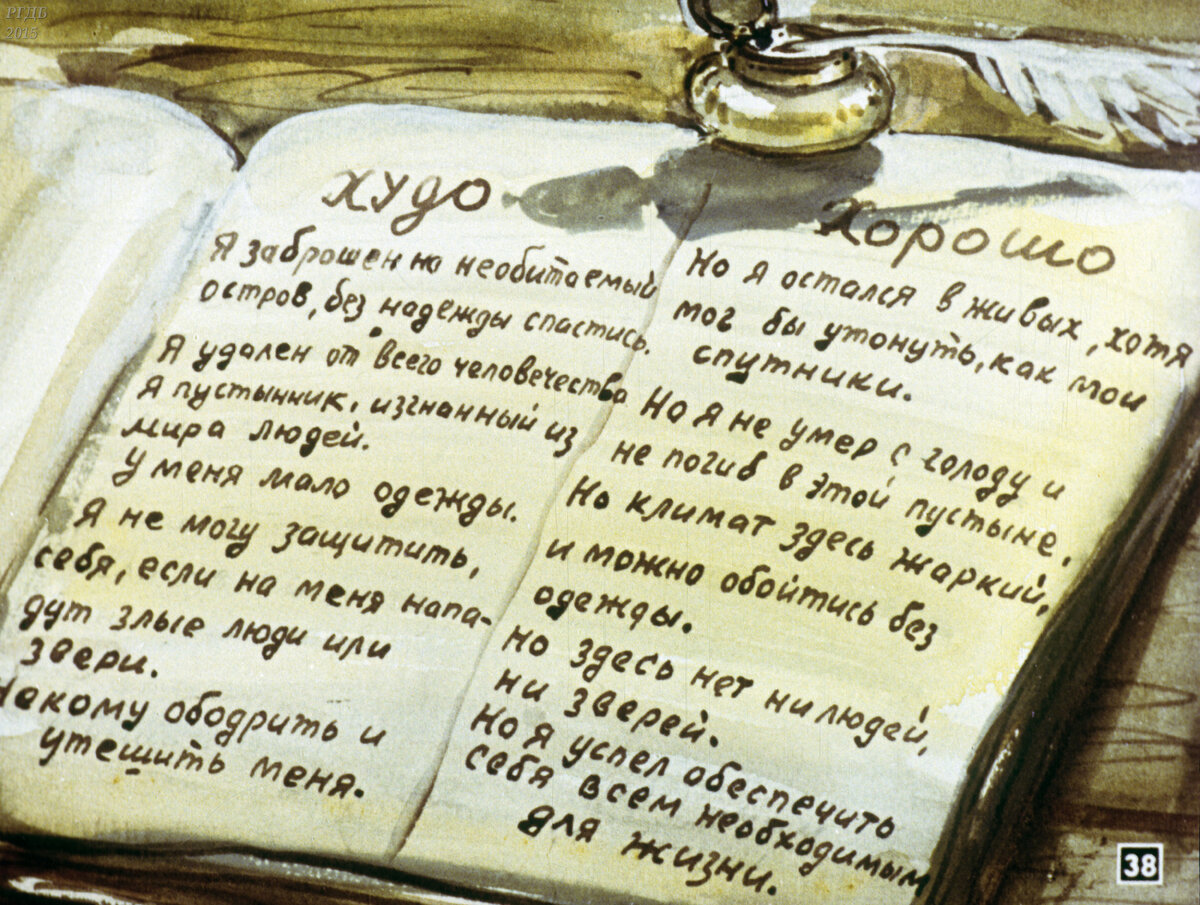 РГДБ
2015
худо
Я заброшен на необитаемый
остров, без надежды спастись.
Я удален от всего человечества
Я пустынник, изгнанный из
мира людей.
У меня мало одежды.
Я не могу защитить,
себя, если на меня напа-
дут злые люди или
звери.
Некому ободрить и
утешить меня.
Хорошо
Но я остался в живых, хотя
мог бы утонуть, как мои
спутники.
Но я не умер с голоду и
не погиб в этой пустыне.
Но климат здесь жаркий,
и можно обойтись без
одежды.
Но здесь нет ни людей,
ни зверей.
Но я успел обеспечить
себя всем необходимым
для жизни.
38